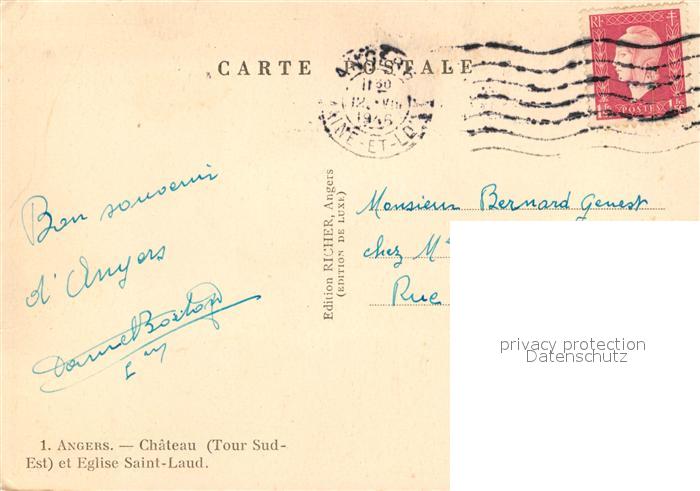 CARTE POSTALE
ANGERS
11 30
12 - VIII
1945
MAINE-ET-LOIRE
RF
POSTES
Bon souvenir
d'Angers
Monsieur Bernard Genest
chez M
Rue
Edition RICHER, Angers
(EDITION DE LUXE)
privacy protection
Datenschutz
1. ANGERS. — Château (Tour Sud-
Est) et Eglise Saint-Laud.